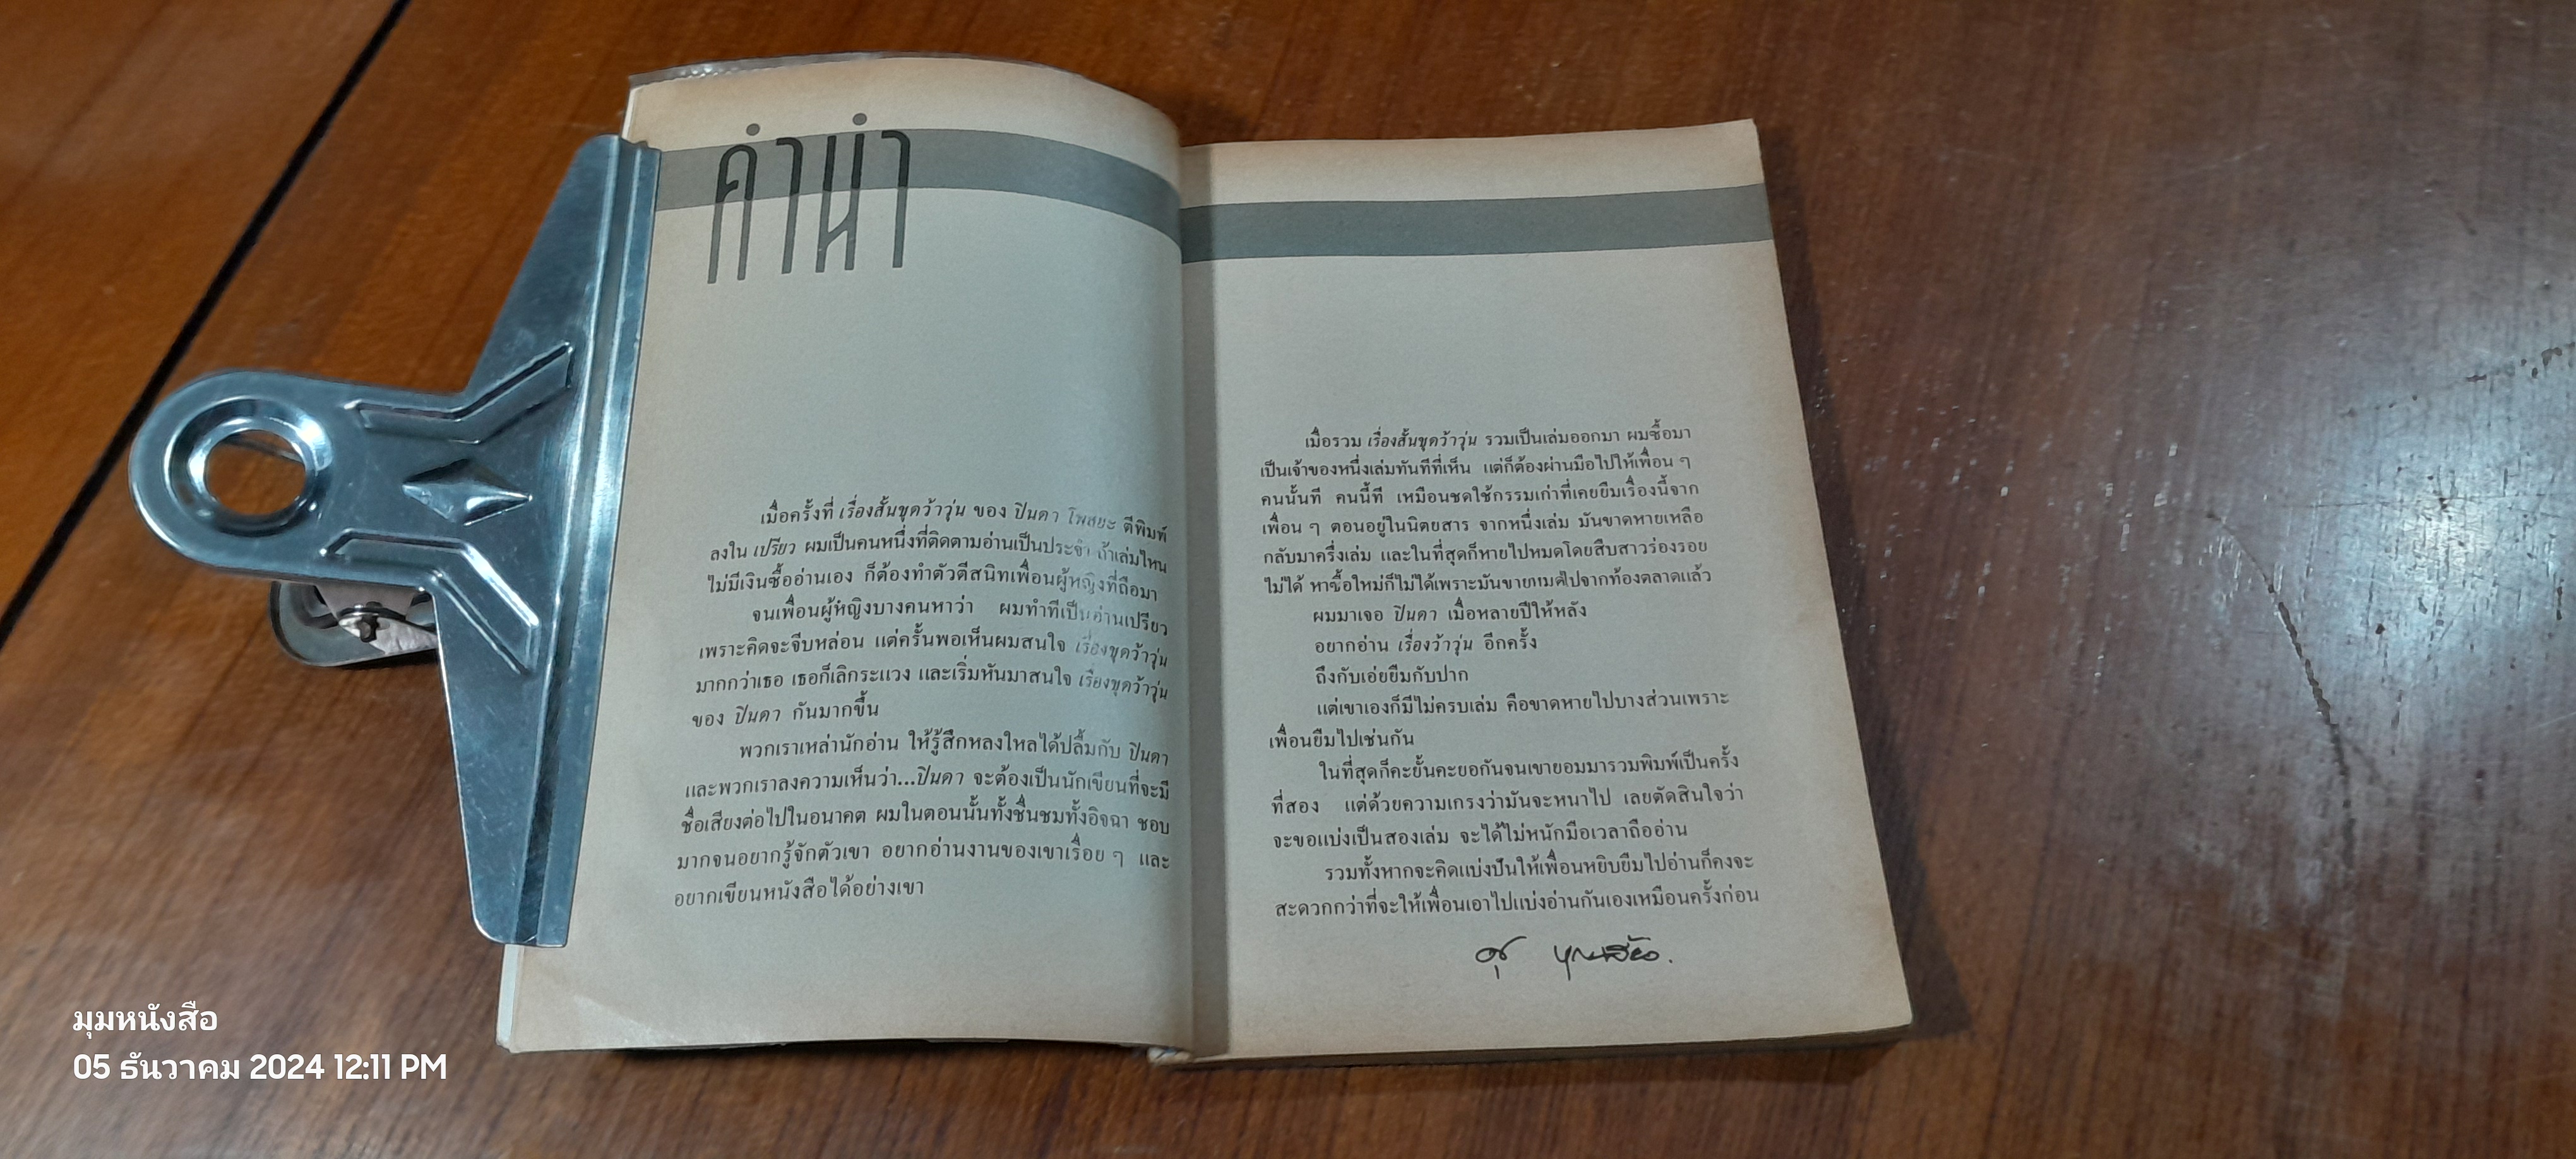 คำนำ
เมื่อครั้งที่ เรื่องสั้นชุดว้าวุ่น ของ ปินดา โพสยะ ตีพิมพ์
ลงใน เปรียว ผมเป็นคนหนึ่งที่ติดตามอ่านเป็นประจำ ถ้าเล่มไหน
ไม่มีเงินซื้ออ่านเอง ก็ต้องทำตัวตีสนิทเพื่อนผู้หญิงที่ถือมา
จนเพื่อนผู้หญิงบางคนหาว่า ผมทำทีเป็นอ่านเปรียว
เพราะคิดจะจีบหล่อน แต่ครั้นพอเห็นผมสนใจ เรื่องชุดว้าวุ่น
มากกว่าเธอ เธอก็เลิกระแวง และเริ่มหันมาสนใจ เรื่องชุดว้าวุ่น
ของ ปินดา กันมากขึ้น
พวกเราเหล่านักอ่าน ให้รู้สึกหลงใหลได้ปลื้มกับ ปินดา
และพวกเราลงความเห็นว่า...ปินดา จะต้องเป็นนักเขียนที่จะมี
ชื่อเสียงต่อไปในอนาคต ผมในตอนนั้นทั้งชื่นชมทั้งอิจฉา ชอบ
มากจนอยากรู้จักตัวเขา อยากอ่านงานของเขาเรื่อย ๆ และ
อยากเขียนหนังสือได้อย่างเขา
เมื่อรวม เรื่องสั้นชุดว้าวุ่น รวมเป็นเล่มออกมา ผมซื้อมา
เป็นเจ้าของหนึ่งเล่มทันทีที่เห็น แต่ก็ต้องผ่านมือไปให้เพื่อน ๆ
คนนั้นที คนนี้ที เหมือนชดใช้กรรมเก่าที่เคยยืมเรื่องนี้จาก
เพื่อน ๆ ตอนอยู่ในนิตยสาร จากหนึ่งเล่ม มันขาดหายเหลือ
กลับมาครึ่งเล่ม และในที่สุดก็หายไปหมดโดยสืบสาวร่องรอย
ไม่ได้ หาซื้อใหม่ก็ไม่ได้เพราะมันขายหมดไปจากท้องตลาดแล้ว
ผมมาเจอ ปินดา เมื่อหลายปีให้หลัง
อยากอ่าน เรื่องว้าวุ่น อีกครั้ง
ถึงกับเอ่ยยืมกับปาก
แต่เขาเองก็มีไม่ครบเล่ม คือขาดหายไปบางส่วนเพราะ
เพื่อนยืมไปเช่นกัน
ในที่สุดก็คะยั้นคะยอกันจนเขายอมมารวมพิมพ์เป็นครั้ง
ที่สอง แต่ด้วยความเกรงว่ามันจะหนาไป เลยตัดสินใจว่า
จะขอแบ่งเป็นสองเล่ม จะได้ไม่หนักมือเวลาถืออ่าน
รวมทั้งหากจะคิดแบ่งปันให้เพื่อนหยิบยืมไปอ่านก็คงจะ
สะดวกกว่าที่จะให้เพื่อนเอาไปแบ่งอ่านกันเองเหมือนครั้งก่อน
มุมหนังสือ
05 ธันวาคม 2024 12:11 PM